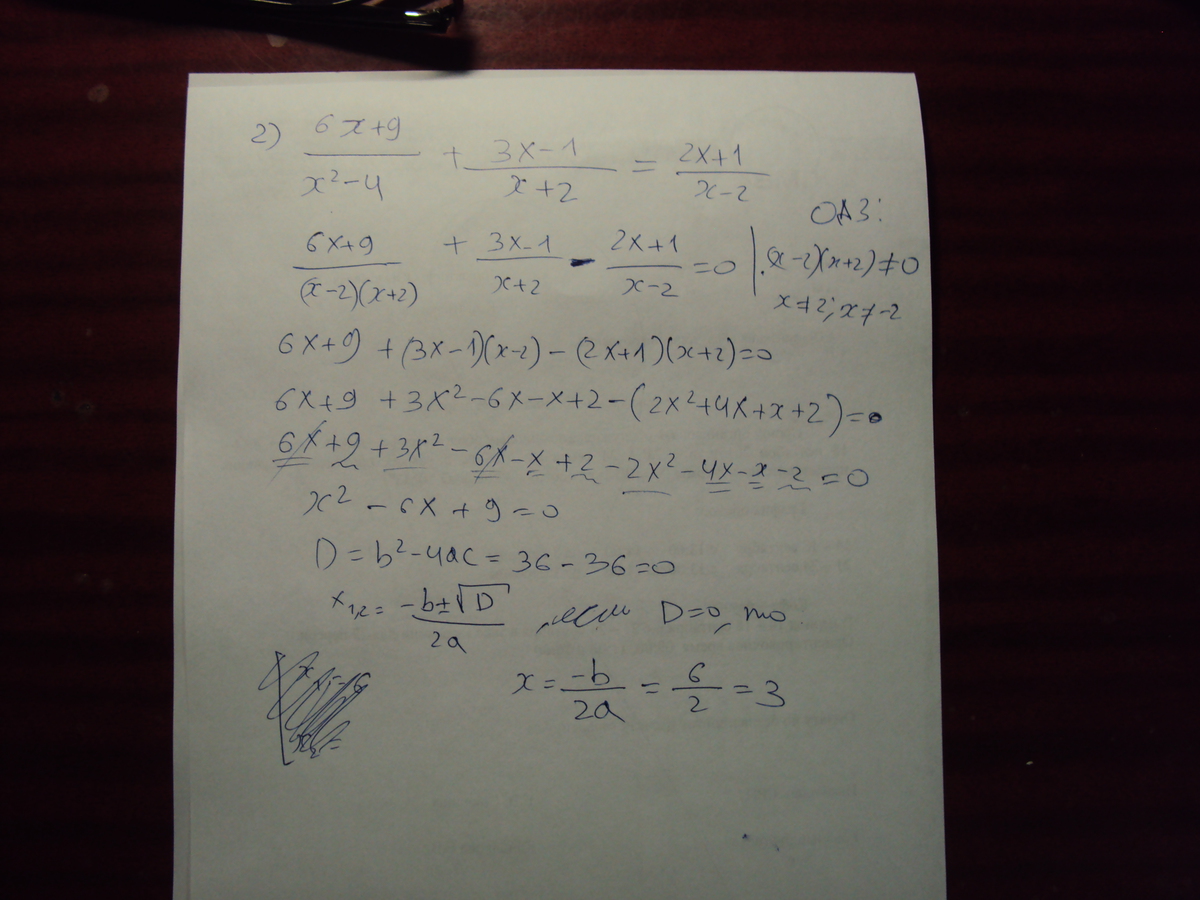 2) (6x+9)/(x²-4) + (3x-1)/(x+2) = (2x+1)/(x-2)
ОДЗ:
(6x+9)/((x-2)(x+2)) + (3x-1)/(x+2) - (2x+1)/(x-2) =0 | ·(x-2)(x+2)≠0
x≠2; x≠-2
6x+9) + (3x-1)(x-2) - (2x+1)(x+2)=0
6x+9 +3x²-6x-x+2-(2x²+4x+x+2)=0
6x+9+3x²-6x-x+2-2x²-4x-x-2=0
x²-6x+9=0
D=b²-4ac=36-36=0
x1,2= (-b±√D)/(2a), если D=0, то
x=(-b)/(2a)=6/2=3